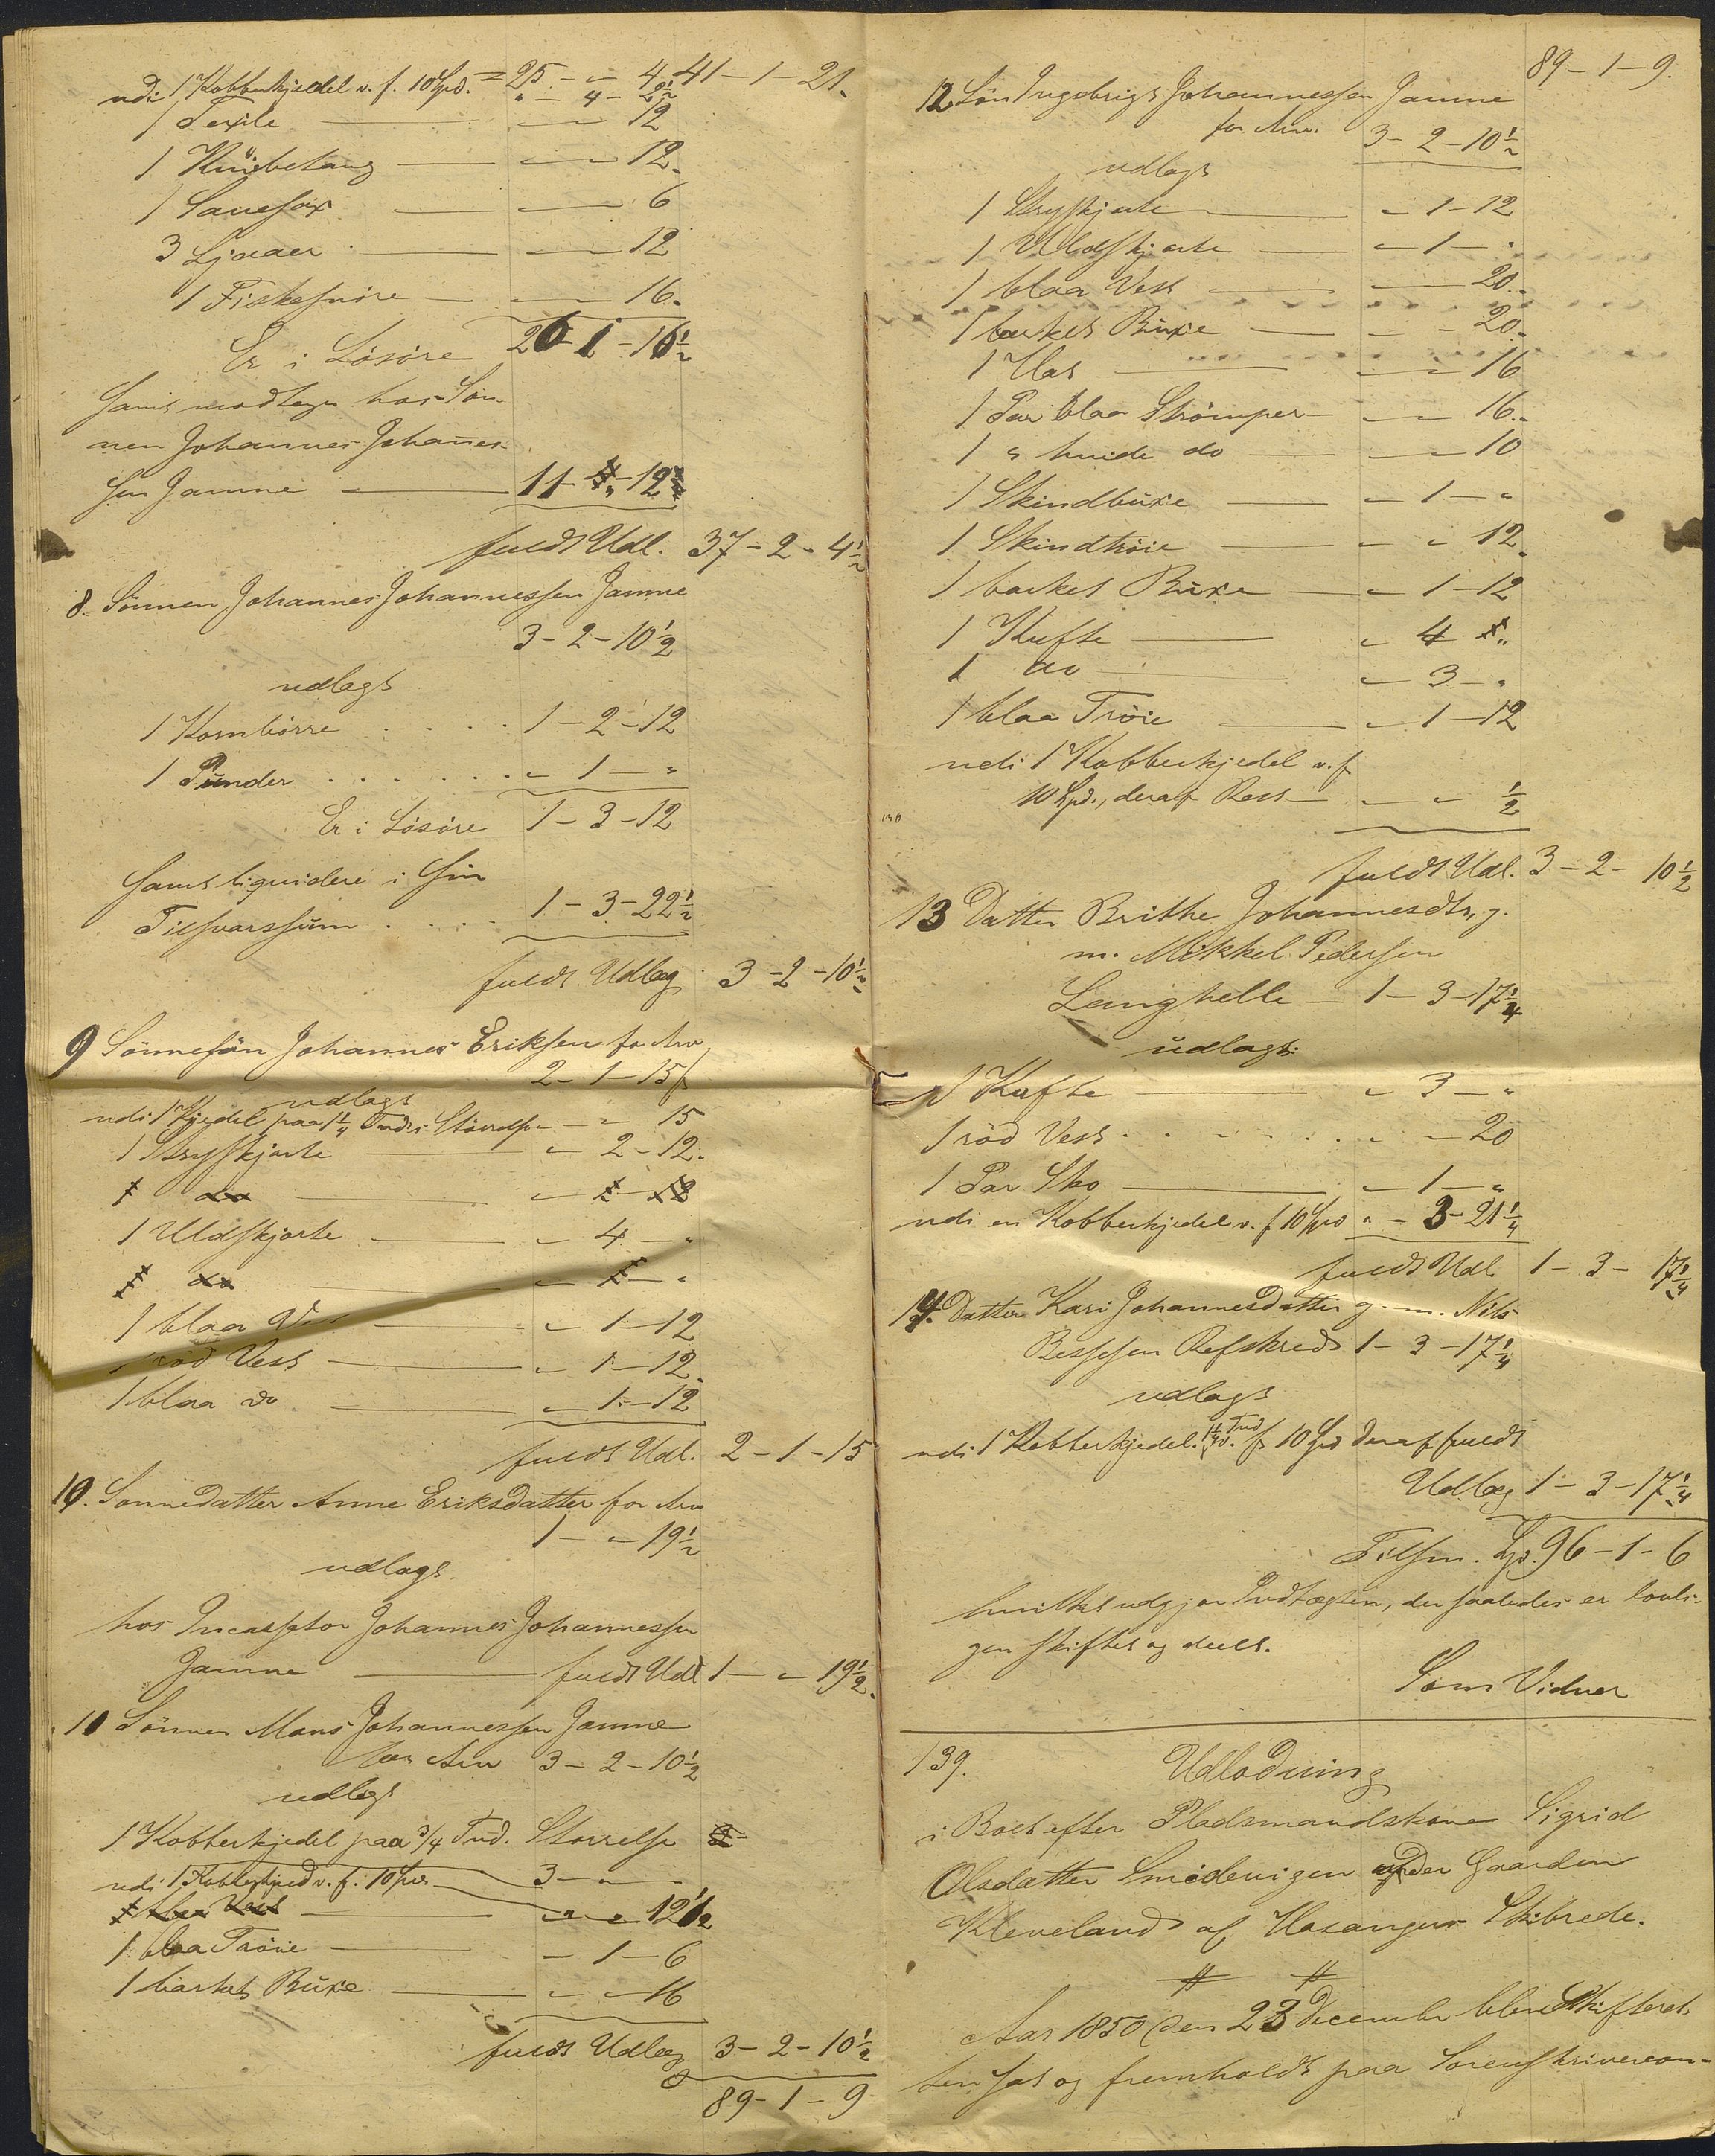 udi 1 Kobberkjedel v. f. 10 Spd. = 25 - " - 4 41 - 1 - 21.
" - 4 - 2½
1 Texle — " - " 12
1 Knibetang — " - " 12.
1 Sauesax — " - " 6
3 Ljaaer — " - " 12
1 Fiskesnøre — " - " 16.
Er i Løsøre 26 - 1 - 16½
Samt modtager hos Søn-
nen Johannes Johanes-
sen Jamne — 11 - " - 12
fuldt Udl. 37 - 2 - 4½
8. Sønnen Johannes Johannessen Jamne
3 - 2 - 10½
udlagt
1 Kornbørre . . . . 1 - 2 - 12
1 Punder . . . . . . " 1 - "
Er i Løsøre 1 - 3 - 12
Samt liquidere i Sin
Tilsvarssum . . . . 1 - 3 - 22½
fuldt Udlæg 3 - 2 - 10½
9 Sønnesøn Johannes Eriksen for Arv
2 - 1 - 15 ß
udlagt
udi 1 Kjedel paa 1¼ Tnds. Størrelse - " - " 15
1 Stryskjorte — " 2 - 12.
1 do — " 1 - 12
1 Uldskjorte — " 4 - "
1 do — " - "
1 blaa — " 1 - 12
1 rød Vest — " 1 - 12
1 blaa do — " 1 - 12
fuldt Udl. 2 - 1 - 15
10. Sønnedatter Anne Eriksdatter for Arv
1 - " - 19½
udlagt
hos Incassator Johannes Johannessen
Jamne — fuldt Udl 1 - " 19½.
11 Sønnen Mons Johannessen Jamne
for Arv 3 - 2 - 10½
udlagt
1 Kobberkjedel paa ¾ Tnd. Størrelse
udi 1 Kobberkjed v. f. 10 Spd 3 - " -
1 blaa Vest — " " 12½
1 blaa Trøie — - 1 - 6
1 barket Buxe — " - " 16
fuldt Udlæg 3 - 2 - 10½
89 - 1 - 9
89 - 1 - 9.
12 Søn Ingebrigt Johannessen Jamne
for Arv. 3 - 2 - 10½
udlagt
1 Stryskjorte — " 1 - 12
1 Uldskjorte — " 1 - "
1 blaa Vest — " - 20.
1 barket Buxe — " - 20.
1 Hat — " - 16
1 Par blaa Strømper — " - 16.
1 " hvide do — " - 10
1 Skindbuxe — " 1 - "
1 Skindtrøie — " " 12.
1 barket Buxe — " 1 - 12
1 Kufte — " 4 "
1 do — " 3 - "
1 blaa Trøie — " 1 - 12
udi 1 Kobberkjedel v. f.
10 Spd., deraf Rest — " " ½
fuldt Udl. 3 - 2 - 10½
13 Datter Brithe Johannesdtr, g.
m. Mikkel Pedersen
Langhelle — 1 - 3 - 17¼
udlagt:
1 Kufte — " 3 - "
1 rød Vest . . . . . . . " - 20
1 Par Sko — " 1 - "
udi en Kobberkjedel v. f 10 Spd " - 3 - 21¼
fuldt Udl. 1 - 3 - 17¼
14. Datter Kari Johannesdatter g. m. Nils
Bessesen Refskred 1 - 3 - 17¼
udlagt
udi 1 Kobberkjedel 1¼ Tnd v. f. 10 Spd deraf fuldt
Udlæg 1 - 3 - 17¼
Tilsm. Spd. 96 - 1 - 6
hvilket udgjør Indtægten, der saaledes er lovli-
gen skiftet og deelt.
Som Vidner
139. Udlodning
i Boet efter Pladsmandskone Sigrid
Olsdatter Smidevigen under Gaarden
Kleveland af Hosangers Skibrede.
Aar 1850 den 23 December blev Skifteret-
ten sat og fremholdt paa Sorenskrivercon-